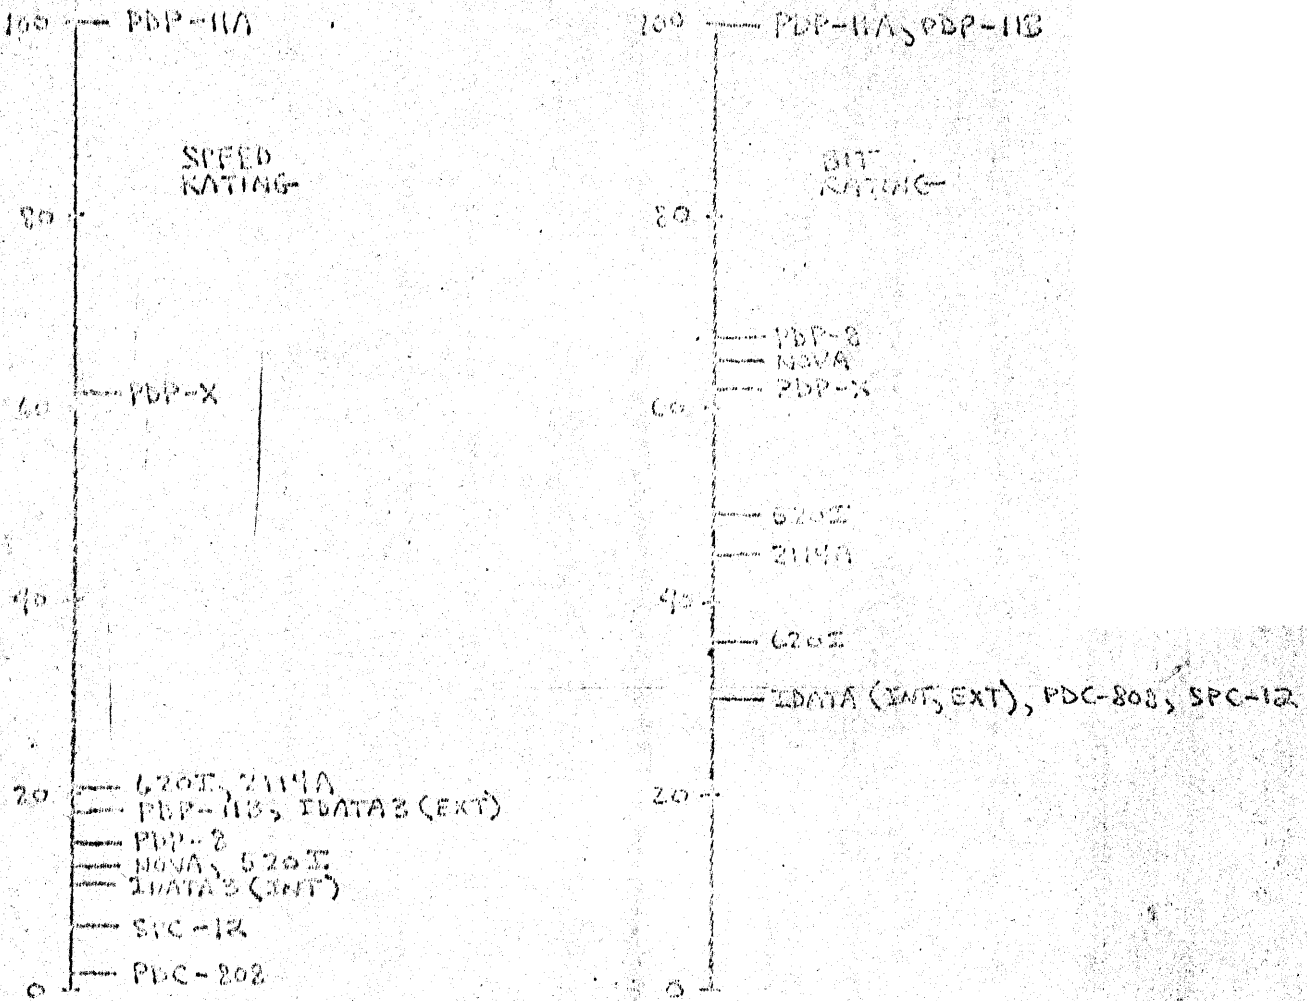 100 PDP-11A
SPEED
RATING
80
PDP-X
60
40
20 620I, 2114A
PDP-11B, IDATA3 (EXT)
PDP-8
NOVA, 520I
IDATA3 (INT)
SPC-12
PDC-808
0
100 PDP-11A, PDP-11B
BIT
RATING
80
PDP-8
NOVA
PDP-X
60
520I
2114A
40
620I
IDATA (INT, EXT), PDC-808, SPC-12
20
0